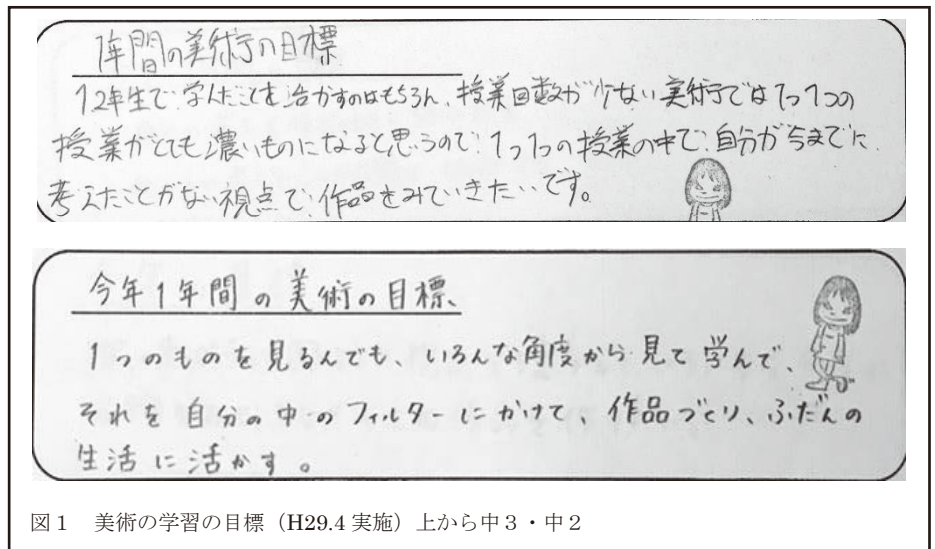 1年間の美術の目標
12年生で学んだことを活かすのはもちろん、授業回数が少ない美術では1つ1つの
授業がとても濃いものになると思うので、1つ1つの授業の中で、自分が今までに
考えたことがない視点で、作品をみていきたいです。
今年1年間の美術の目標、
1つのものを見るんでも、いろんな角度から見て学んで、
それを自分の中のフィルターにかけて、作品づくり、ふだんの
生活に活かす。
図1 美術の学習の目標（H29.4 実施）上から中3・中2